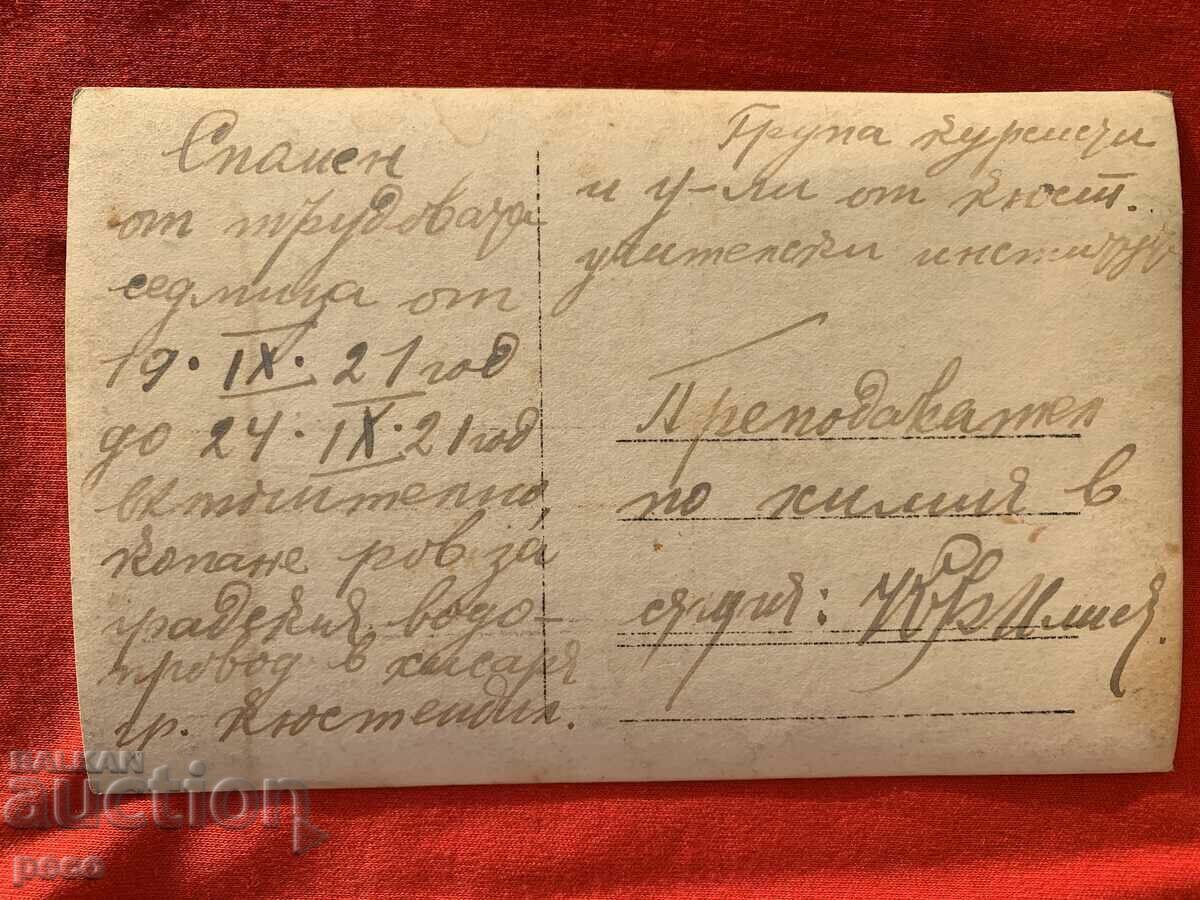 Спомен
от трудовата
седмица от
19. IX. 21 год
до 24. IX. 21 год
включително,
копане ров за
градския водо-
провод в хисаря
гр. Кюстендил.
Група курсисти
и у-ли от Кюст.
учителски институт
Преподавател
по химия в
същия:
BALKAN
auction
peco